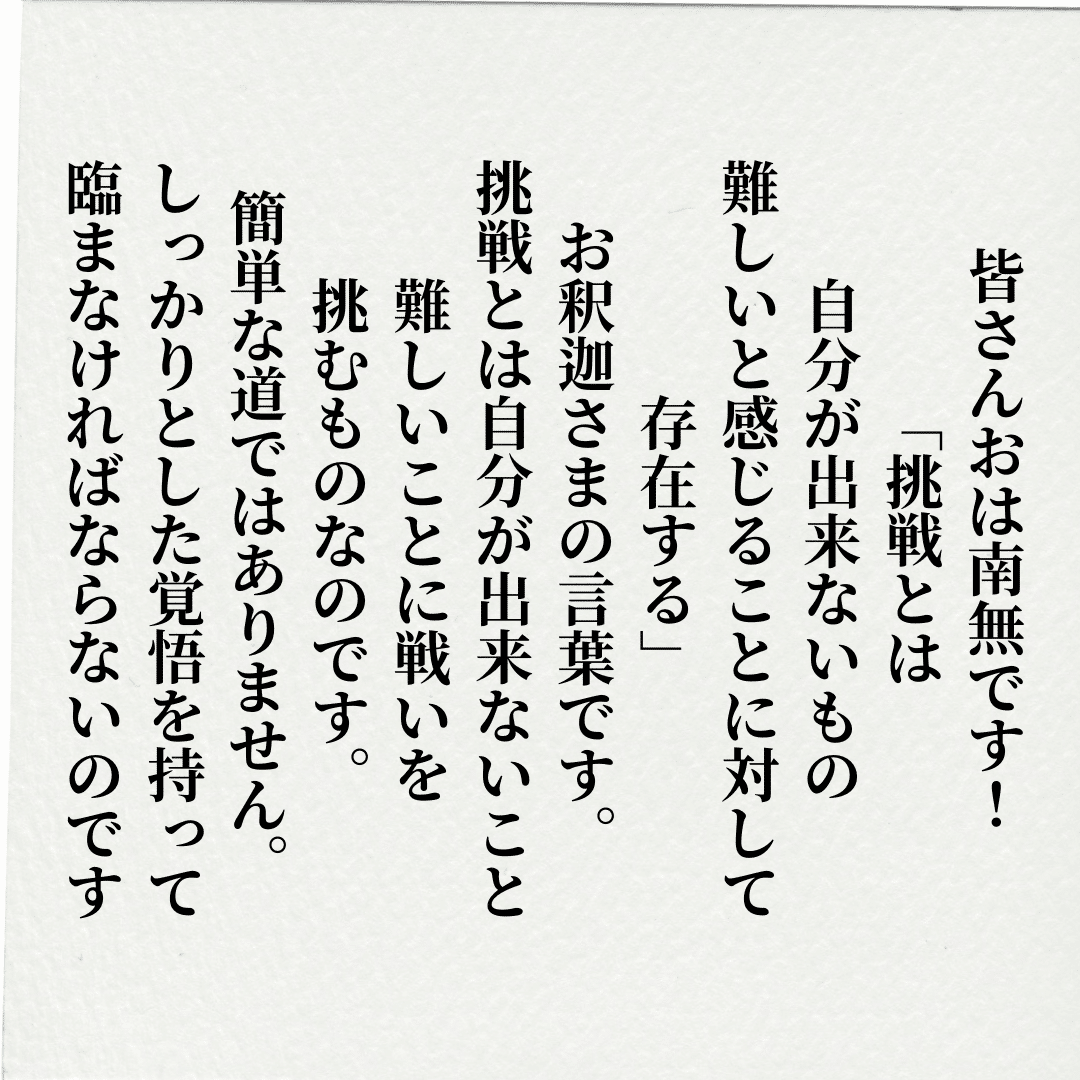 皆さんおは南無です！
「挑戦とは
自分が出来ないもの
難しいと感じることに対して
存在する」
お釈迦さまの言葉です。
挑戦とは自分が出来ないこと
難しいことに戦いを
挑むものなのです。
簡単な道ではありません。
しっかりとした覚悟を持って
臨まなければならないのです